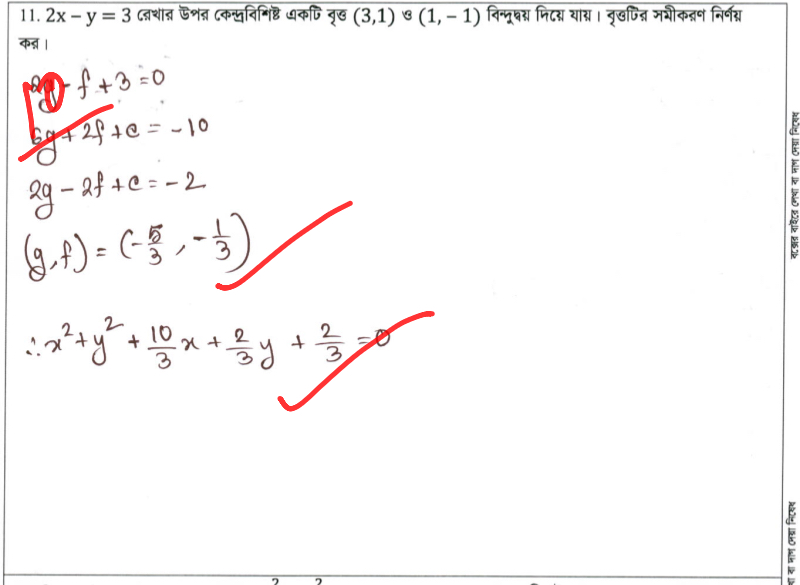 11. 2x – y = 3 রেখার উপর কেন্দ্রবিশিষ্ট একটি বৃত্ত (3,1) ও (1, – 1) বিন্দুদ্বয় দিয়ে যায়। বৃত্তটির সমীকরণ নির্ণয়
কর।
2g - f + 3 = 0
6g + 2f + c = -10
2g - 2f + c = -2
(g, f) = (-5/3, -1/3)
∴ x² + y² + 10/3 x + 2/3 y + 2/3 = 0
বক্সের বাইরে লেখা বা দাগ দেয়া নিষেধ
খা বা দাগ দেয়া নিষেধ